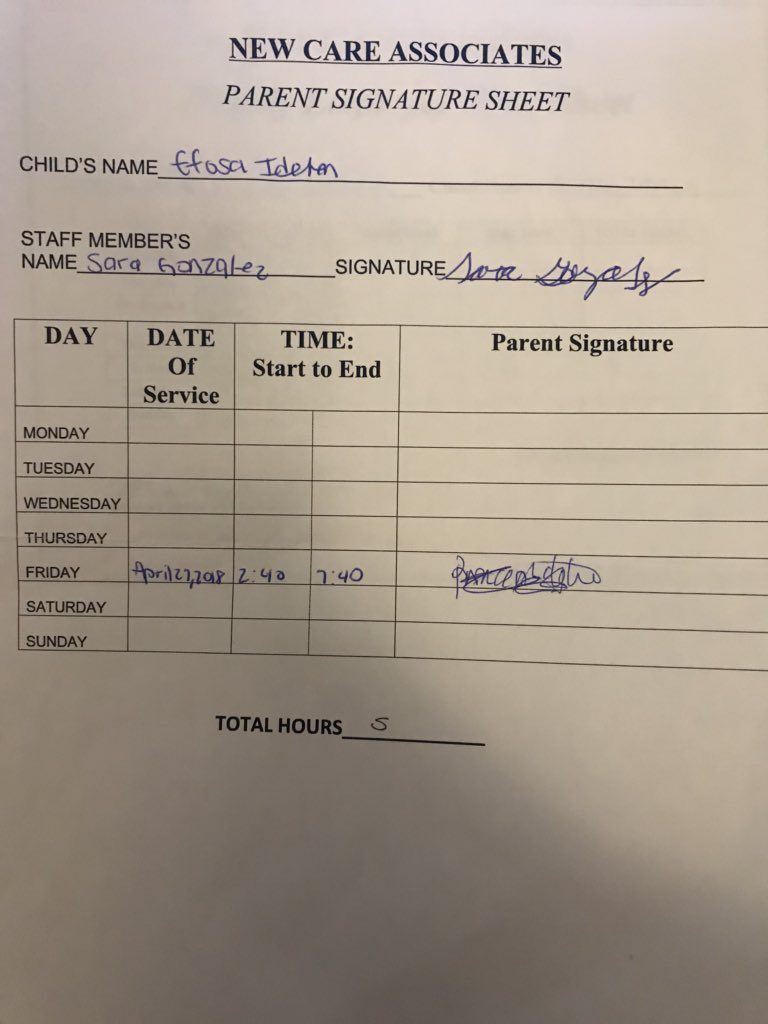 NEW CARE ASSOCIATES
PARENT SIGNATURE SHEET
CHILD'S NAME Efosa
STAFF MEMBER'S
NAME Sara Gonzalez SIGNATURE Sara
DAY DATE Of Service TIME: Start to End Parent Signature
MONDAY
TUESDAY
WEDNESDAY
THURSDAY
FRIDAY April 27, 2018 2:40 7:40
SATURDAY
SUNDAY
TOTAL HOURS 5